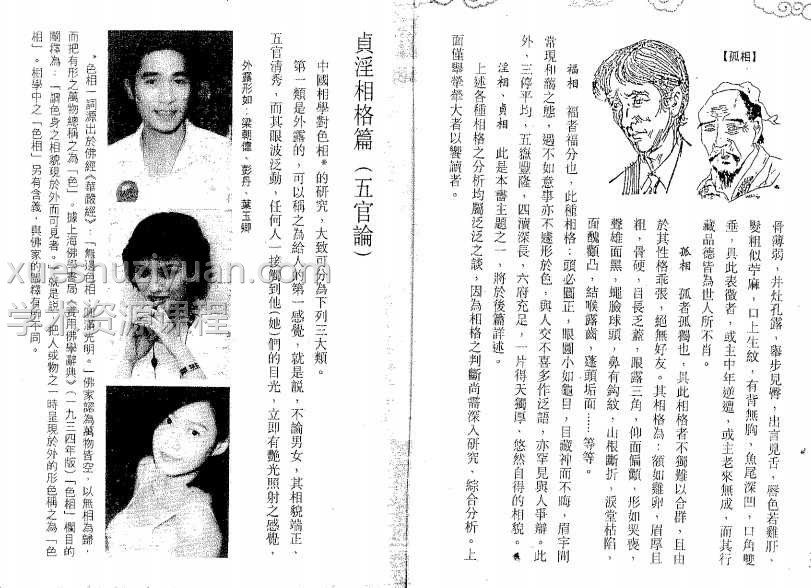 【孤相】
骨薄弱，井灶孔露，舉步見臀，出言見舌，唇色若雞肝、
髮粗似苧麻，口上生紋，有背無胸，魚尾深凹，口角雙
垂，具此表徵者，或主中年逆邅，或主老來無成，而其行
藏品德皆為世人所不肖。
孤相　孤者孤獨也，具此相格者不獨難以合群，且由
於其性格乖張，絕無好友。其相格為：額如雞卵，眉厚且
粗，骨硬，目長乏蓋，眼露三角，仰面偏顱，形如哭喪，
聲雄面黑，蠅臉球頭，鼻有鈎紋，山根斷折，淚堂枯陷，
面醜顴凸，結喉露齒，蓬頭垢面……等等。
福相　福者福分也，此種相格：頭必圓正，眼圓小如龜目，目藏神而不晦，眉宇間
常現和藹之態，遇不如意事亦不遽形於色，與人交不喜多作泛語，亦罕見與人爭辯。此
外，三停平均，五嶽豐隆，四瀆深長，六府充足，一片得天獨厚，悠然自得的相貌。
淫相、貞相　此是本書主題之一，將於後篇詳述。
上述各種相格之分析均屬泛泛之談，因為相格之判斷尚需深入研究，綜合分析。上
面僅舉犖犖大者以饗讀者。
貞淫相格篇（五官論）
中國相學對色相*的研究，大致可分為下列三大類。
第一類是外露的，可以稱之為給人的第一感覺，就是説，不論男女，其相貌端正、
五官清秀，而其眼波泛動，任何人一接觸到他(她)們的目光，立即有艷光照射之感覺，
外露形如：梁朝偉、彭丹、葉玉卿
*色相一詞源出於佛經《華嚴經》：「無邊色相，圓滿光明。」佛家認為萬物皆空，以無相為歸，
而把有形之萬物總稱之為「色」。據上海佛學書局《實用佛學辭典》（一九三四年版）「色相」欄目的
闡釋為：「謂色身之相貌現於外而可見者。」就是説，把人或物之一時呈現於外的形色稱之為「色
相」。相學中之「色相」另有含義，與佛家的闡釋有所不同。
xuexiziyuan.com
学习资源课程